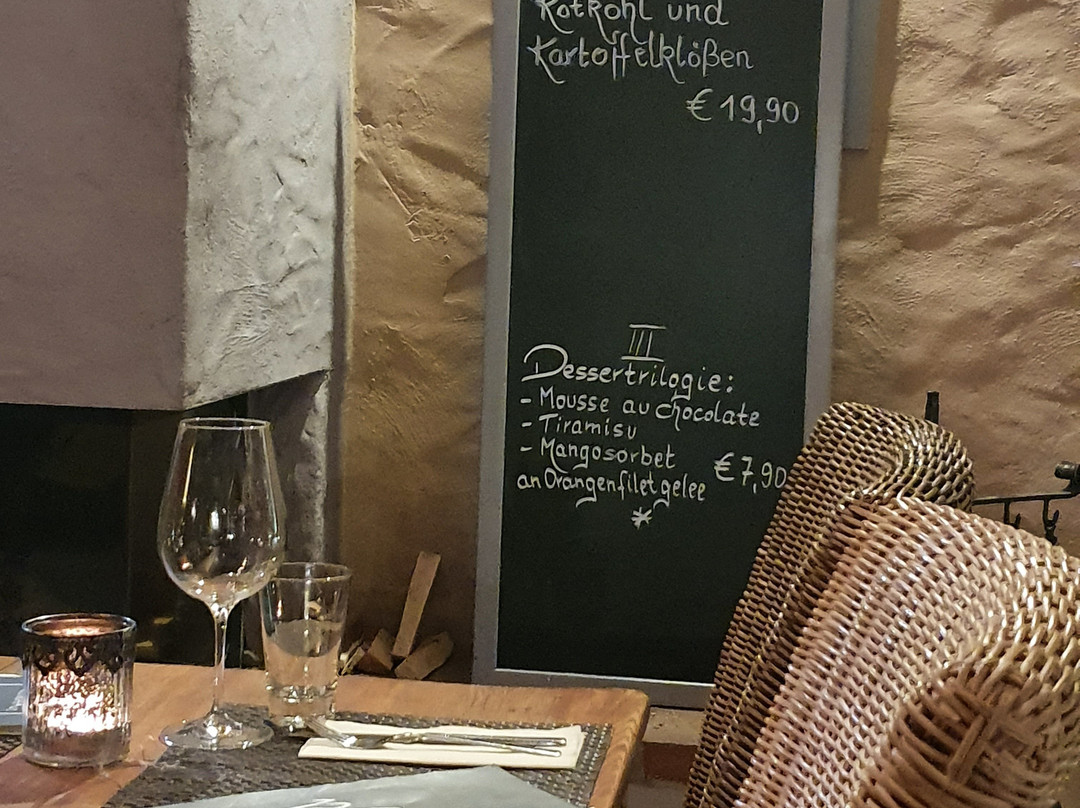 Rotkohl und
Kartoffelklößen
€ 19,90
III
Dessertrilogie:
- Mousse au chocolate
- Tiramisu
- Mangosorbet
an Orangenfiletgelee
€ 7,90
*